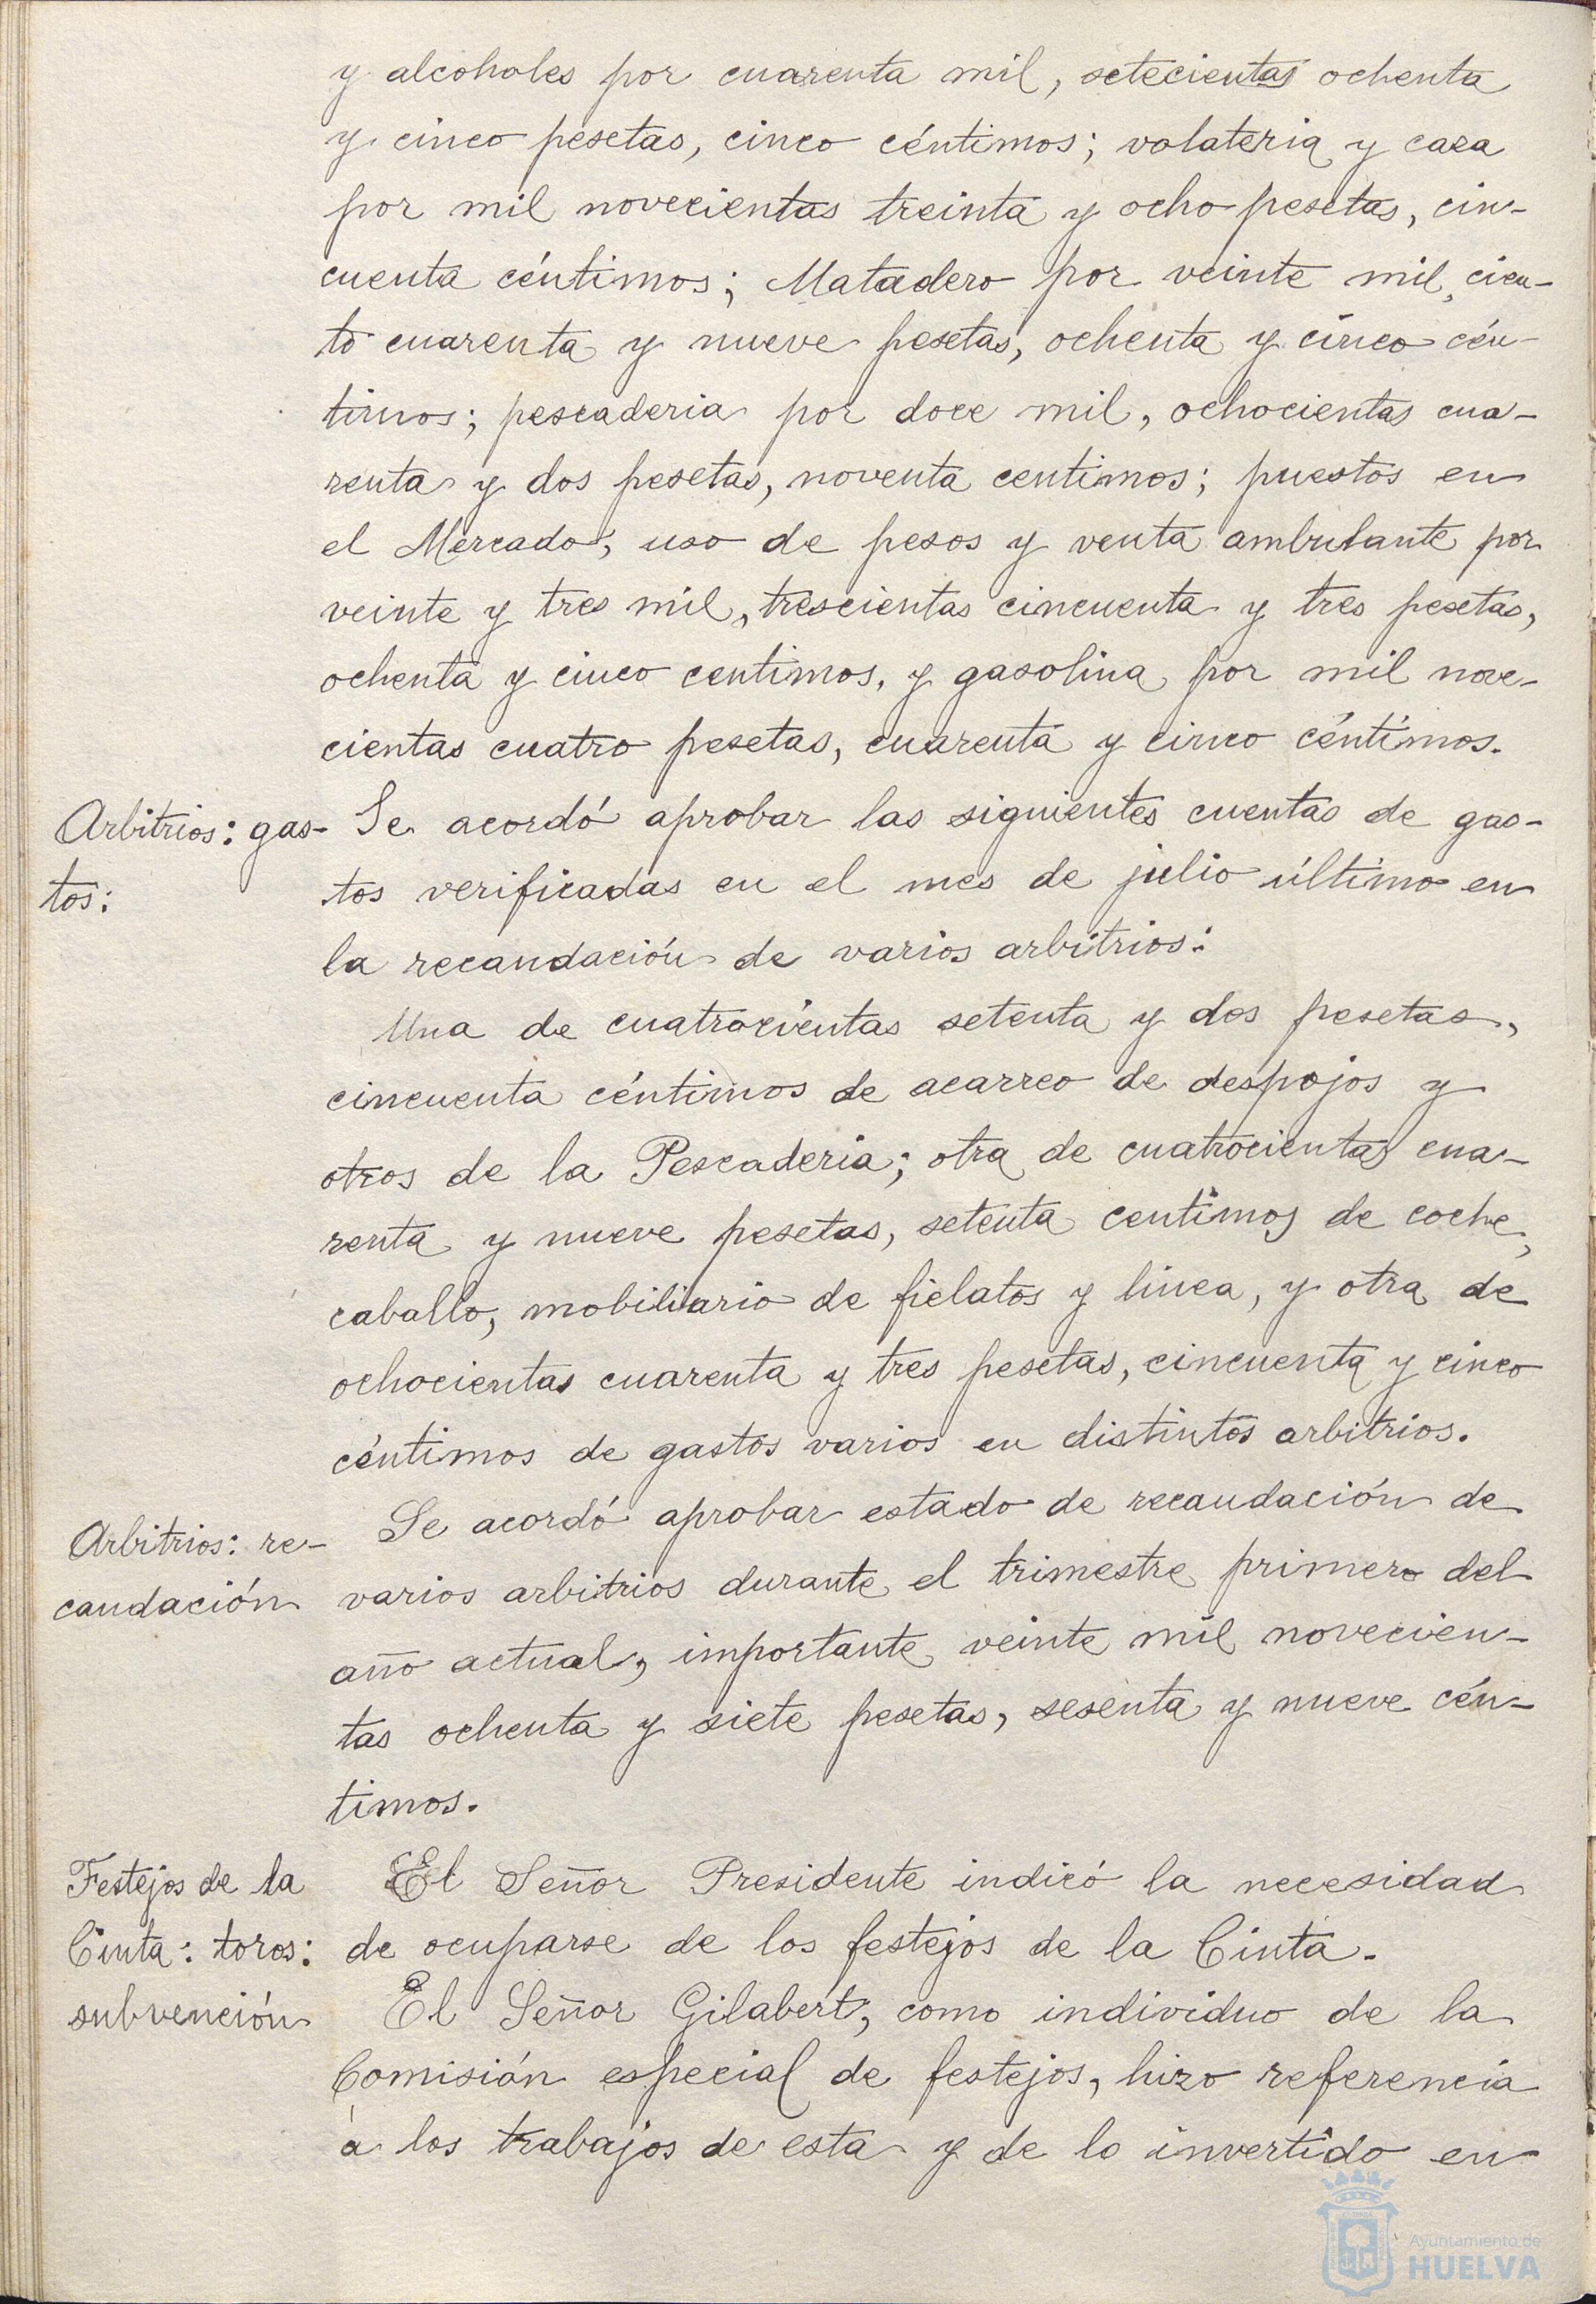 y alcoholes por cuarenta mil, setecientas ochenta
y cinco pesetas, cinco céntimos; volateria y caza
por mil novecientas treinta y ocho pesetas, cin-
cuenta céntimos; Matadero por veinte mil, cien-
to cuarenta y nueve pesetas, ochenta y cinco cén-
timos; pescaderia por doce mil, ochocientas cua-
renta y dos pesetas, noventa centimos; puestos en
el Mercado, uso de pesos y venta ambulante por
veinte y tres mil, trescientas cincuenta y tres pesetas,
ochenta y cinco centimos, y gasolina por mil nove-
cientas cuatro pesetas, cuarenta y cinco céntimos.
Arbitrios: gas-
tos:
Se acordó aprobar las siguientes cuentas de gas-
tos verificadas en el mes de julio último en
la recaudación de varios arbitrios:
Una de cuatrocientas setenta y dos pesetas,
cincuenta céntimos de acarreo de despojos y
otros de la Pescaderia; otra de cuatrocientas cua-
renta y nueve pesetas, setenta centimos de coche,
caballo, mobiliario de fielatos y linea, y otra de
ochocientas cuarenta y tres pesetas, cincuenta y cinco
céntimos de gastos varios en distintos arbitrios.
Arbitrios: re-
caudación
Se acordó aprobar estado de recaudación de
varios arbitrios durante el trimestre primero del
año actual, importante veinte mil novecien-
tas ochenta y siete pesetas, sesenta y nueve cén-
timos.
Festejos de la
Cinta: toros:
subvención
El Señor Presidente indicó la necesidad
de ocuparse de los festejos de la Cinta.
El Señor Gilabert, como individuo de la
Comisión especial de festejos, hizo referencia
á los trabajos de esta y de lo invertido en
Ayuntamiento de
HUELVA